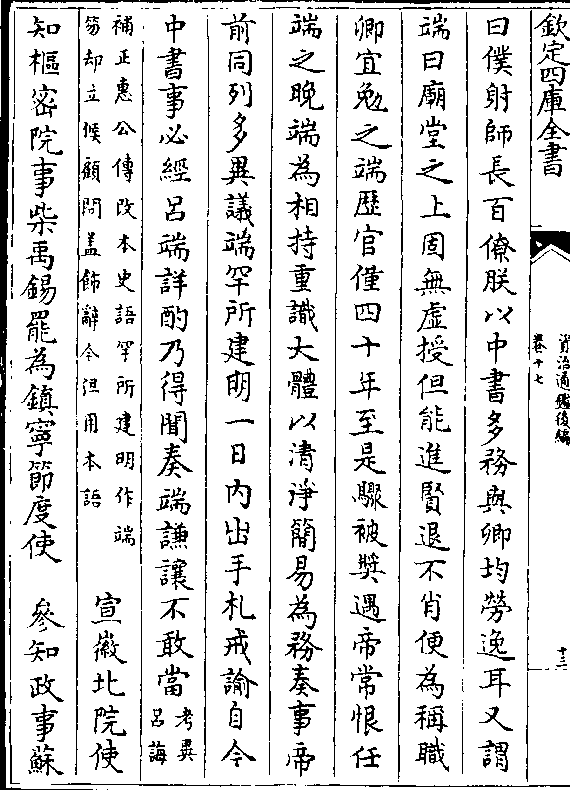 欽定四庫全書
資治通鑑後編
卷十七
十三
曰僕射師長百僚朕以中書多務與卿均勞逸耳又謂
端曰廟堂之上固無虛授但能進賢退不肖便為稱職
卿宜勉之端歷官僅四十年至是驟被奬遇帝常恨任
端之晚端為相持重識大體以清淨簡易為務奏事帝
前同列多異議端罕所建明一日內出手札戒諭自今
中書事必經呂端詳酌乃得聞奏端謙讓不敢當
考異
呂誨
補正惠公傳改本史語罕所建明作端
笏却立候顧問蓋飾辭今但用本語
宣徽北院使
知樞密院事柴禹錫罷為鎮寧節度使
參知政事蘇